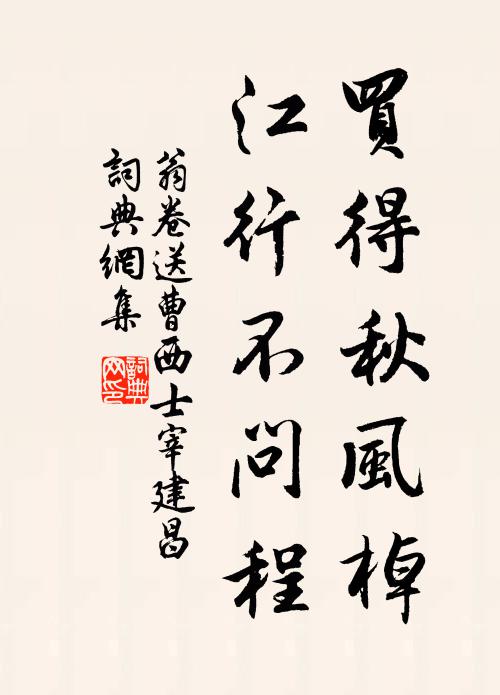 買得秋風棹
江行不問程
翁卷送曹西士宰建昌
詞典網集
詞典
网印